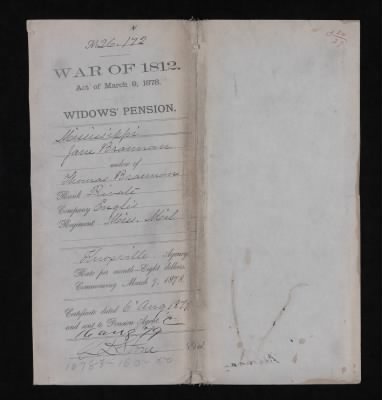 N
No 26.172
WAR OF 1812.
Act of March 9, 1878.
WIDOWS' PENSION.
Mississippi
Jane Brannan
widow of
Thomas Brannan
Rank Private
Company English
Regiment Miss. Mil
Knoxville Agency
Rate per month—Eight dollars,
Commencing March 9, 1878.
Certificate dated 6 Aug 1879
and sent to Pension Agent
16 Aug 79
Clerk.